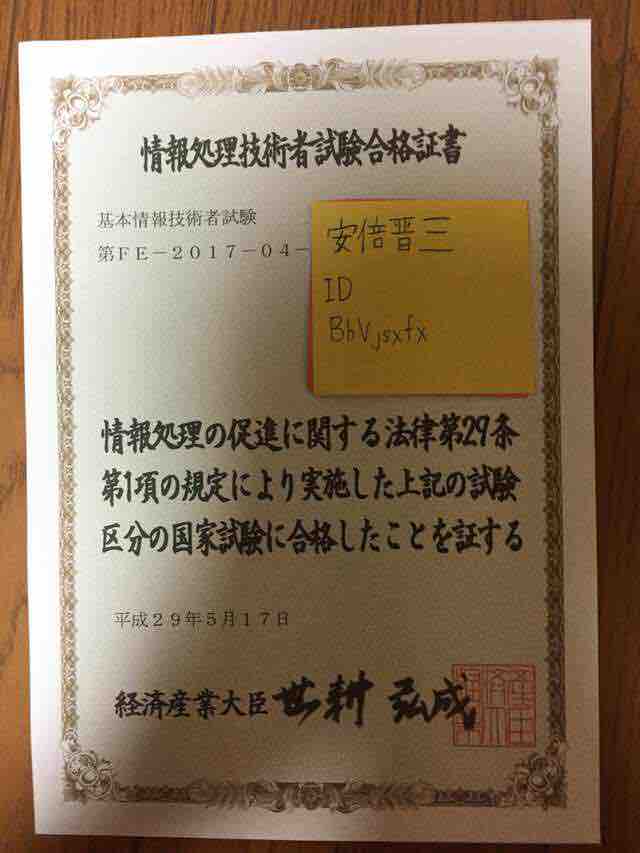 情報処理技術者試験合格証書
基本情報技術者試験
第FE－2017－04－
安倍晋三
ID
BbVjsxfx
情報処理の促進に関する法律第29条
第1項の規定により実施した上記の試験
区分の国家試験に合格したことを証する
平成29年5月17日
経済産業大臣 世耕弘成